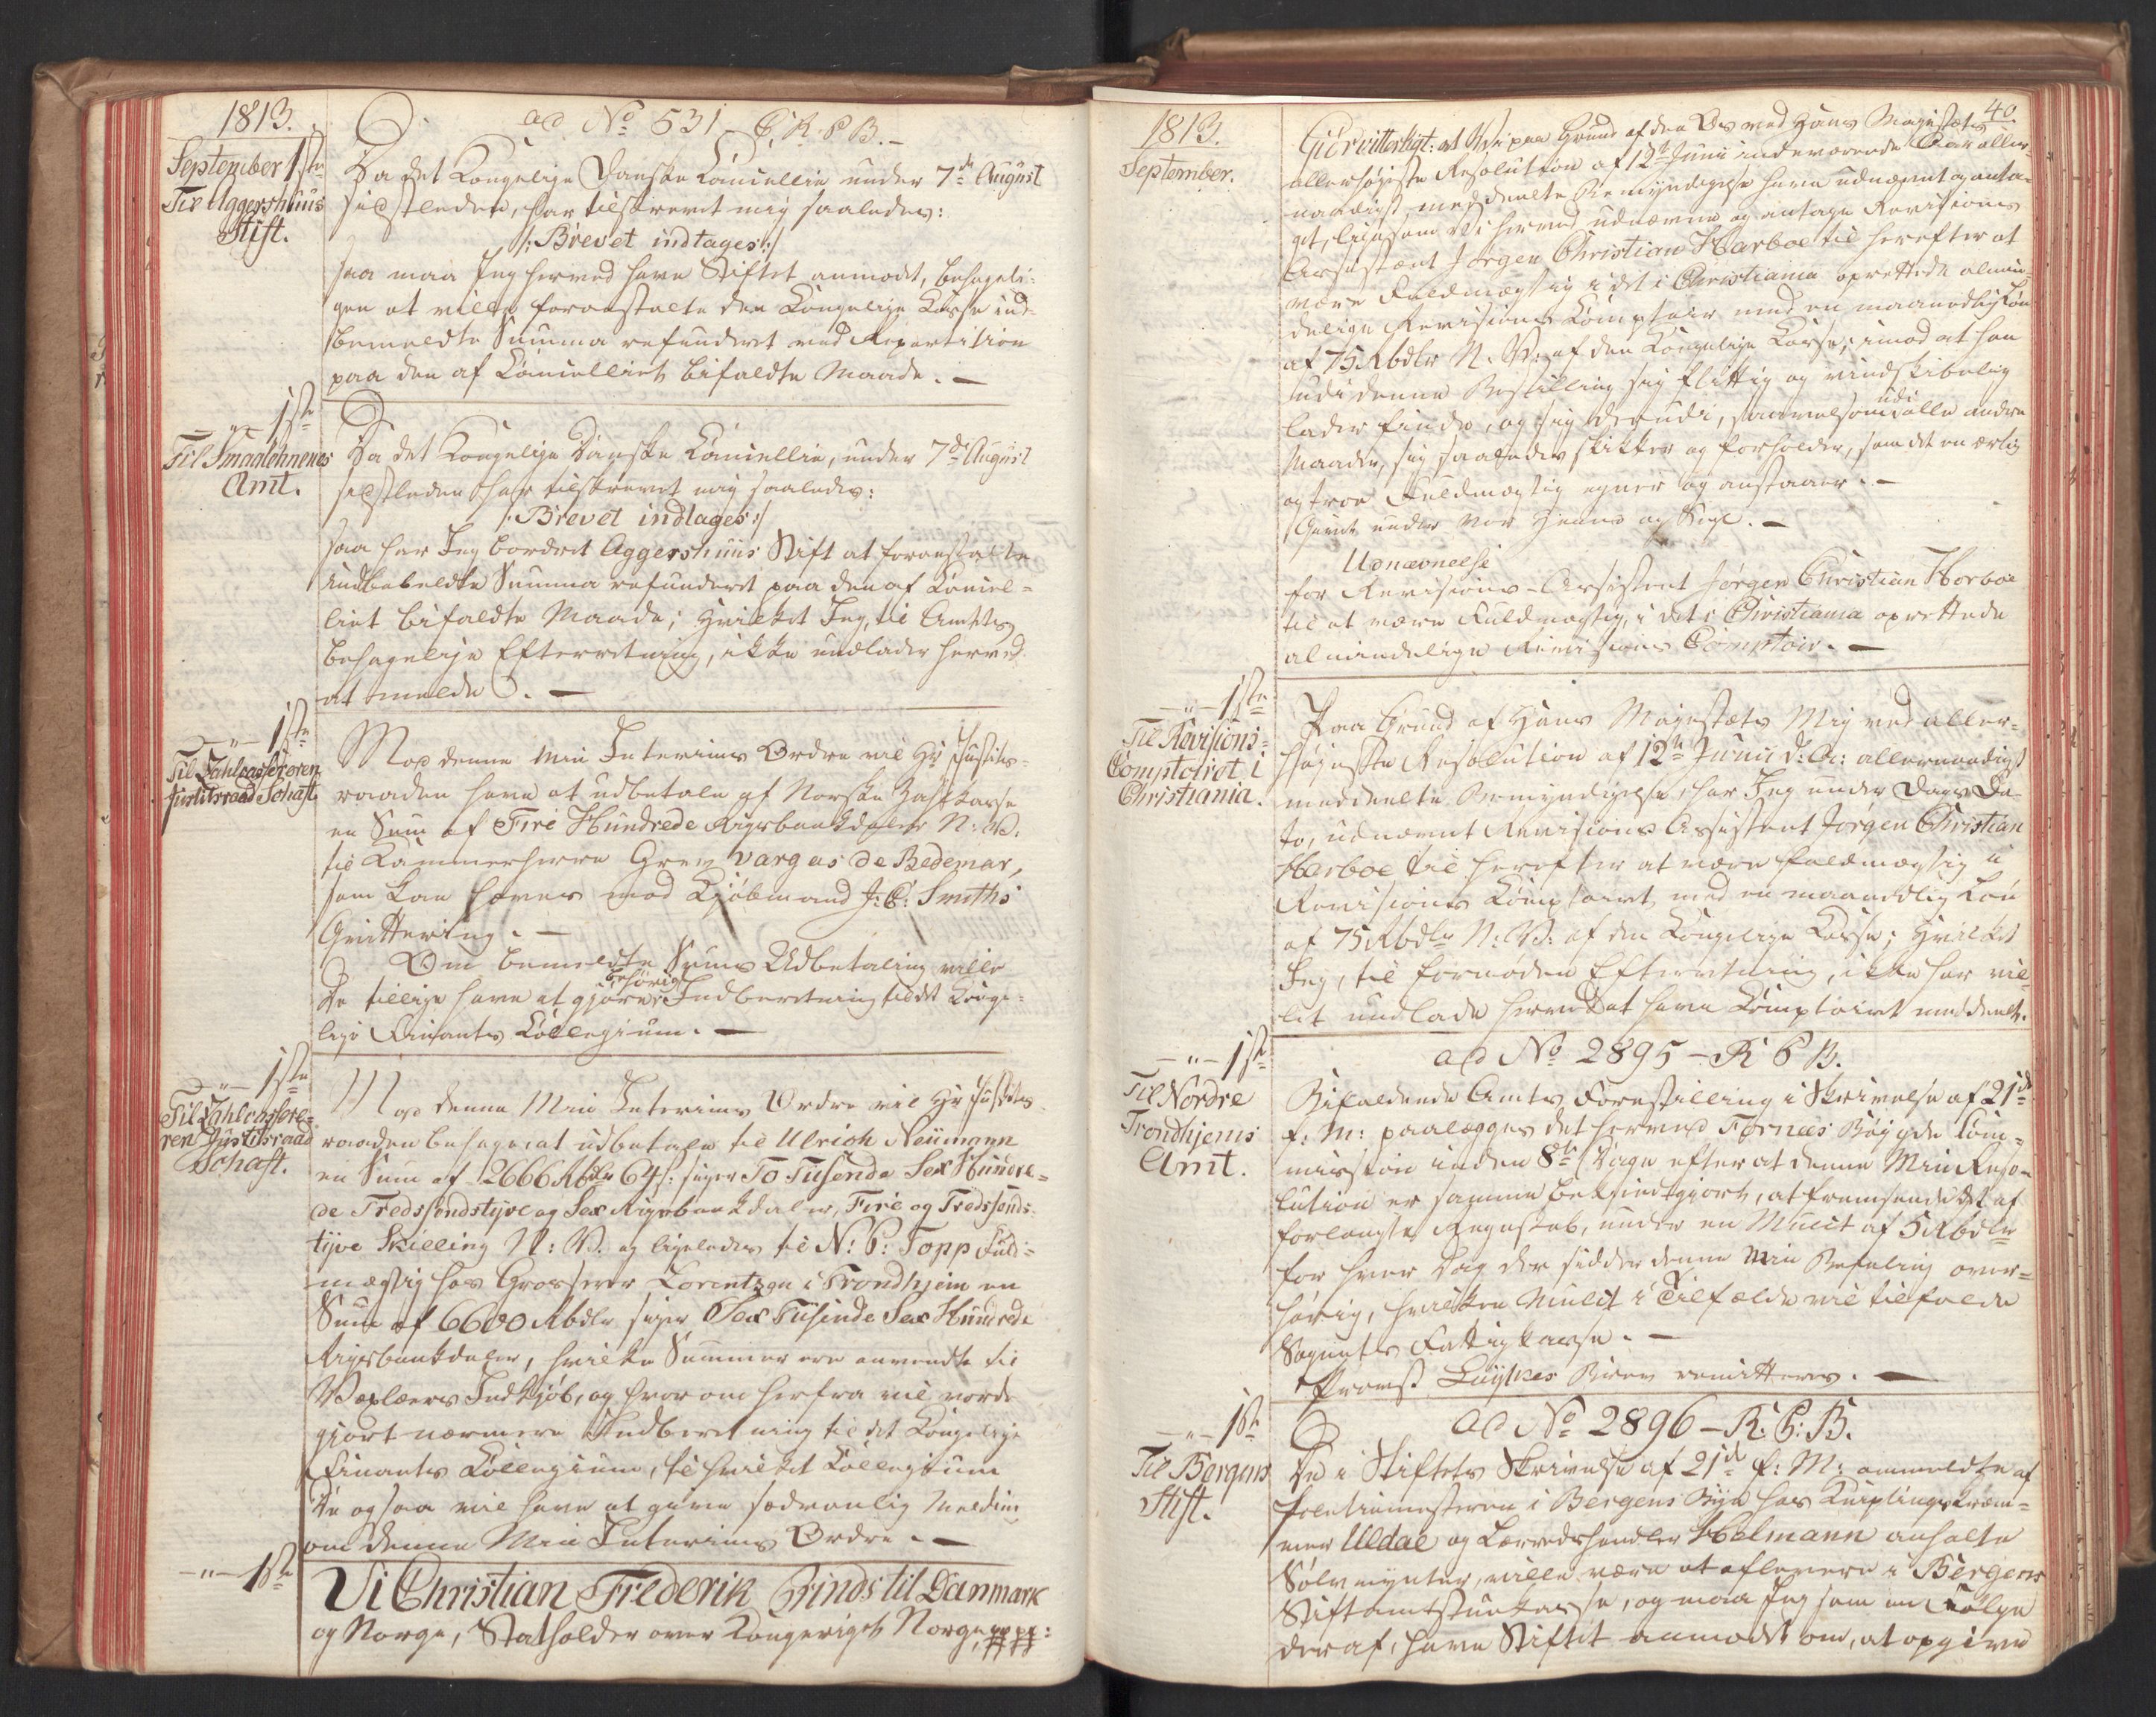 1813.
ad No 531 C. K. P. B. –
September 1ste
Til Aggershuus
Stift.
Da det Kongelige Danske Cancellie under 7de August
sidstleden, har tilskrevet mig saaledes:
/: Brevet indtages :/
saa maa Jeg herved have Stiftet anmodet, behageli-
gen at ville foranstalte den Kongelige Casse ind-
bemeldte Summa refunderet ved Repartition
paa den af Cancelliet bifaldte Maade. –
–„– 1ste
Til Smaalehnenes
Amt.
Da det Kongelige Danske Cancellie, under 7de August
sidstleden har tilskrevet mig saaledes:
/: Brevet indtages :/
saa har Jeg beordret Aggershuus Stift at foranstalte
indbemeldte Summa refunderet paa den af Cancel-
liet bifaldte Maade; hvilket Jeg, til Amtets
behagelige Efterretning, ikke undlader herved
at melde. –
–„– 1ste
Til Zahlcassereren
Justitsraad Schaft.
Mod denne Min Interims Ordre vil Hr Justits-
raaden have at udbetale af Norske Zahlkasse
en Sum af Fire Hundrede Rigsbankdaler N: V.
til Kammerherre Grev Vargas de Bedemar,
som kan hæves mod Kjøbmand J: C: Smiths
Qvittering. –
Om bemeldte Sums Udbetaling ville
De tillige have at gjøre behørig Indberetning til det Konge-
lige Finants Collegium. –
–„– 1ste
Til Zahlcassere-
ren Justitsraad
Schaft.
Mod denne Min Interims Ordre vil Hr Justits-
raaden behage at udbetale til Ulrich Neumann
en Sum af 2666 Rbdlr 64 s: siger To Tusende Sex Hundre-
de Tredssindstyve og Sex Rigsbankdaler, Fire og Tredssinds-
tyve Skilling N: V. og ligeledes til N: P: Topp Fuld-
mægtig hos Grosserer Lorentzen i Trondhjem en
Sum af 6600 Rbdlr siger Sex Tusinde Sex Hundrede
Rigsbankdaler, hvilke Summer ere anvendte til
Vexlers Indkjøb, og hvor om herfra vil vorde
gjort nærmere Indberetning til det Kongelige
Finants Collegium, til hvilket Collegium
De ogsaa vil have at give sædvanlig Melding
om denne Min Interims Ordre. –
–„– 1ste
Vi Christian Frederik Prinds til Danmark
og Norge, Statholder over Kongeriget Norge pp pp:
40.
1813.
September.
Giør vitterligt: at Vi paa Grund af den Os ved Hans Majestæts
allerhøieste Resolution af 12te Juni indeværende Aar aller-
naadigst meddeelte Bemyndigelse have udnævnt og anta-
get, ligesom Vi herved udnævne og antage Revisions
Assistent Jørgen Christian Harboe til herefter at
være Fuldmægtig i det i Christiania oprettede almin-
delige Revisions Comptoir med en maanedlig Løn
af 75 Rbdlr N: V: af den Kongelige Casse, imod at han
udi denne Bestilling sig flittig og vindskibelig
lader finde, og sig derudi, saavelsom udi alle andre
Maader, sig saaledes skikker og forholder, som det en ærlig
og troe Fuldmægtig egner og anstaaer. –
Givet under Vor Haand og Segl. –
Udnævnelse
for Revisions-Assistent Jørgen Christian Harboe
til at være Fuldmægtig, i det i Christiania oprettede
almindelige Revisions Comptoir. –
–„– 1ste
Til Revisions-
Comptoiret i
Christiania.
Paa Grund af Hans Majestæts Mig ved aller-
høieste Resolution af 12te Junii d: A: allernaadigst
meddeelte Bemyndigelse, har Jeg under Dags Da-
to, udnævnt Revisions Assistent Jørgen Christian
Harboe til herefter at være Fuldmægtig i
Revisions Comptoiret, med en maanedlig Løn
af 75 Rbdlr N: V: af den Kongelige Casse; hvilket
Jeg, til fornøden Efterretning, ikke har vil-
let undlade herved at have Comptoiret meddeelt.
–„– 1ste
Til Nordre
Trondhjems
Amt.
ad No 2895 – K P B.
Bifaldende Amtets Forestilling i Skrivelse af 21de
f: M: paalægges det herved Fornæs Bøigde Com-
mission inden 8te Dage efter at denne Min Reso-
lution er samme bekiendtgjort, at fremsende det af
forlangte Regnskab, under en Mulct af 5 Rbdlr
for hver Dag der sidder denne Min Befaling over-
hørig, hvilken Mulct i Tilfælde vil tilfalde
Sognets Fattigkasse. –
Provst Lüytkes Brev remitteres. –
–„– 1ste
Til Bergens
Stift.
ad No 2896 – K: P: B.
De i Stiftets Skrivelse af 21de f: M: anmeldte af
Politiemesteren i Bergens Bye hos Kniplingskræm-
mer Uldal og Lærredshandler Helmann anholte
Sølvmynter, ville være at aflevere i Bergens
Stiftamtstuekasse, og maa Jeg som en Følge
deraf, have Stiftet anmodet om, at opgive